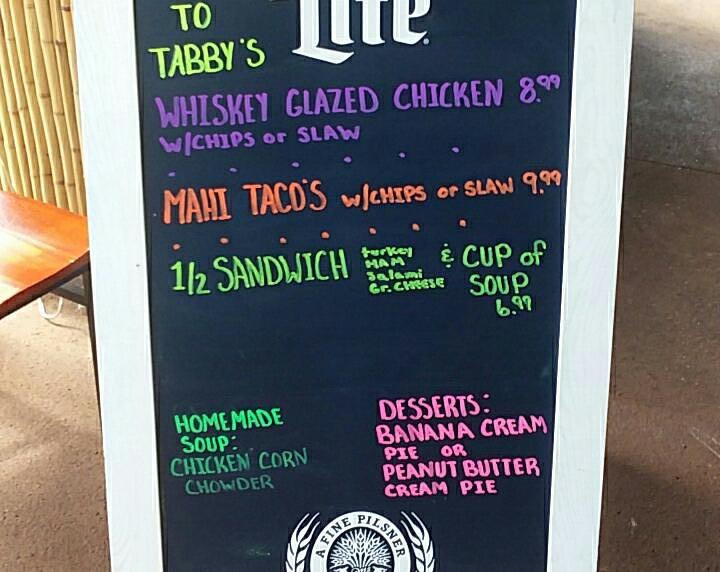 TO
Lite
TABBY'S
WHISKEY GLAZED CHICKEN 8.99
W/CHIPS or SLAW
MAHI TACO'S w/CHIPS or SLAW 9.99
1/2 SANDWICH turkey HAM Salami Gr. CHEESE & CUP of SOUP 6.99
HOMEMADE
SOUP:
CHICKEN CORN
CHOWDER
DESSERTS:
BANANA CREAM
PIE OR
PEANUT BUTTER
CREAM PIE
A FINE PILSNER